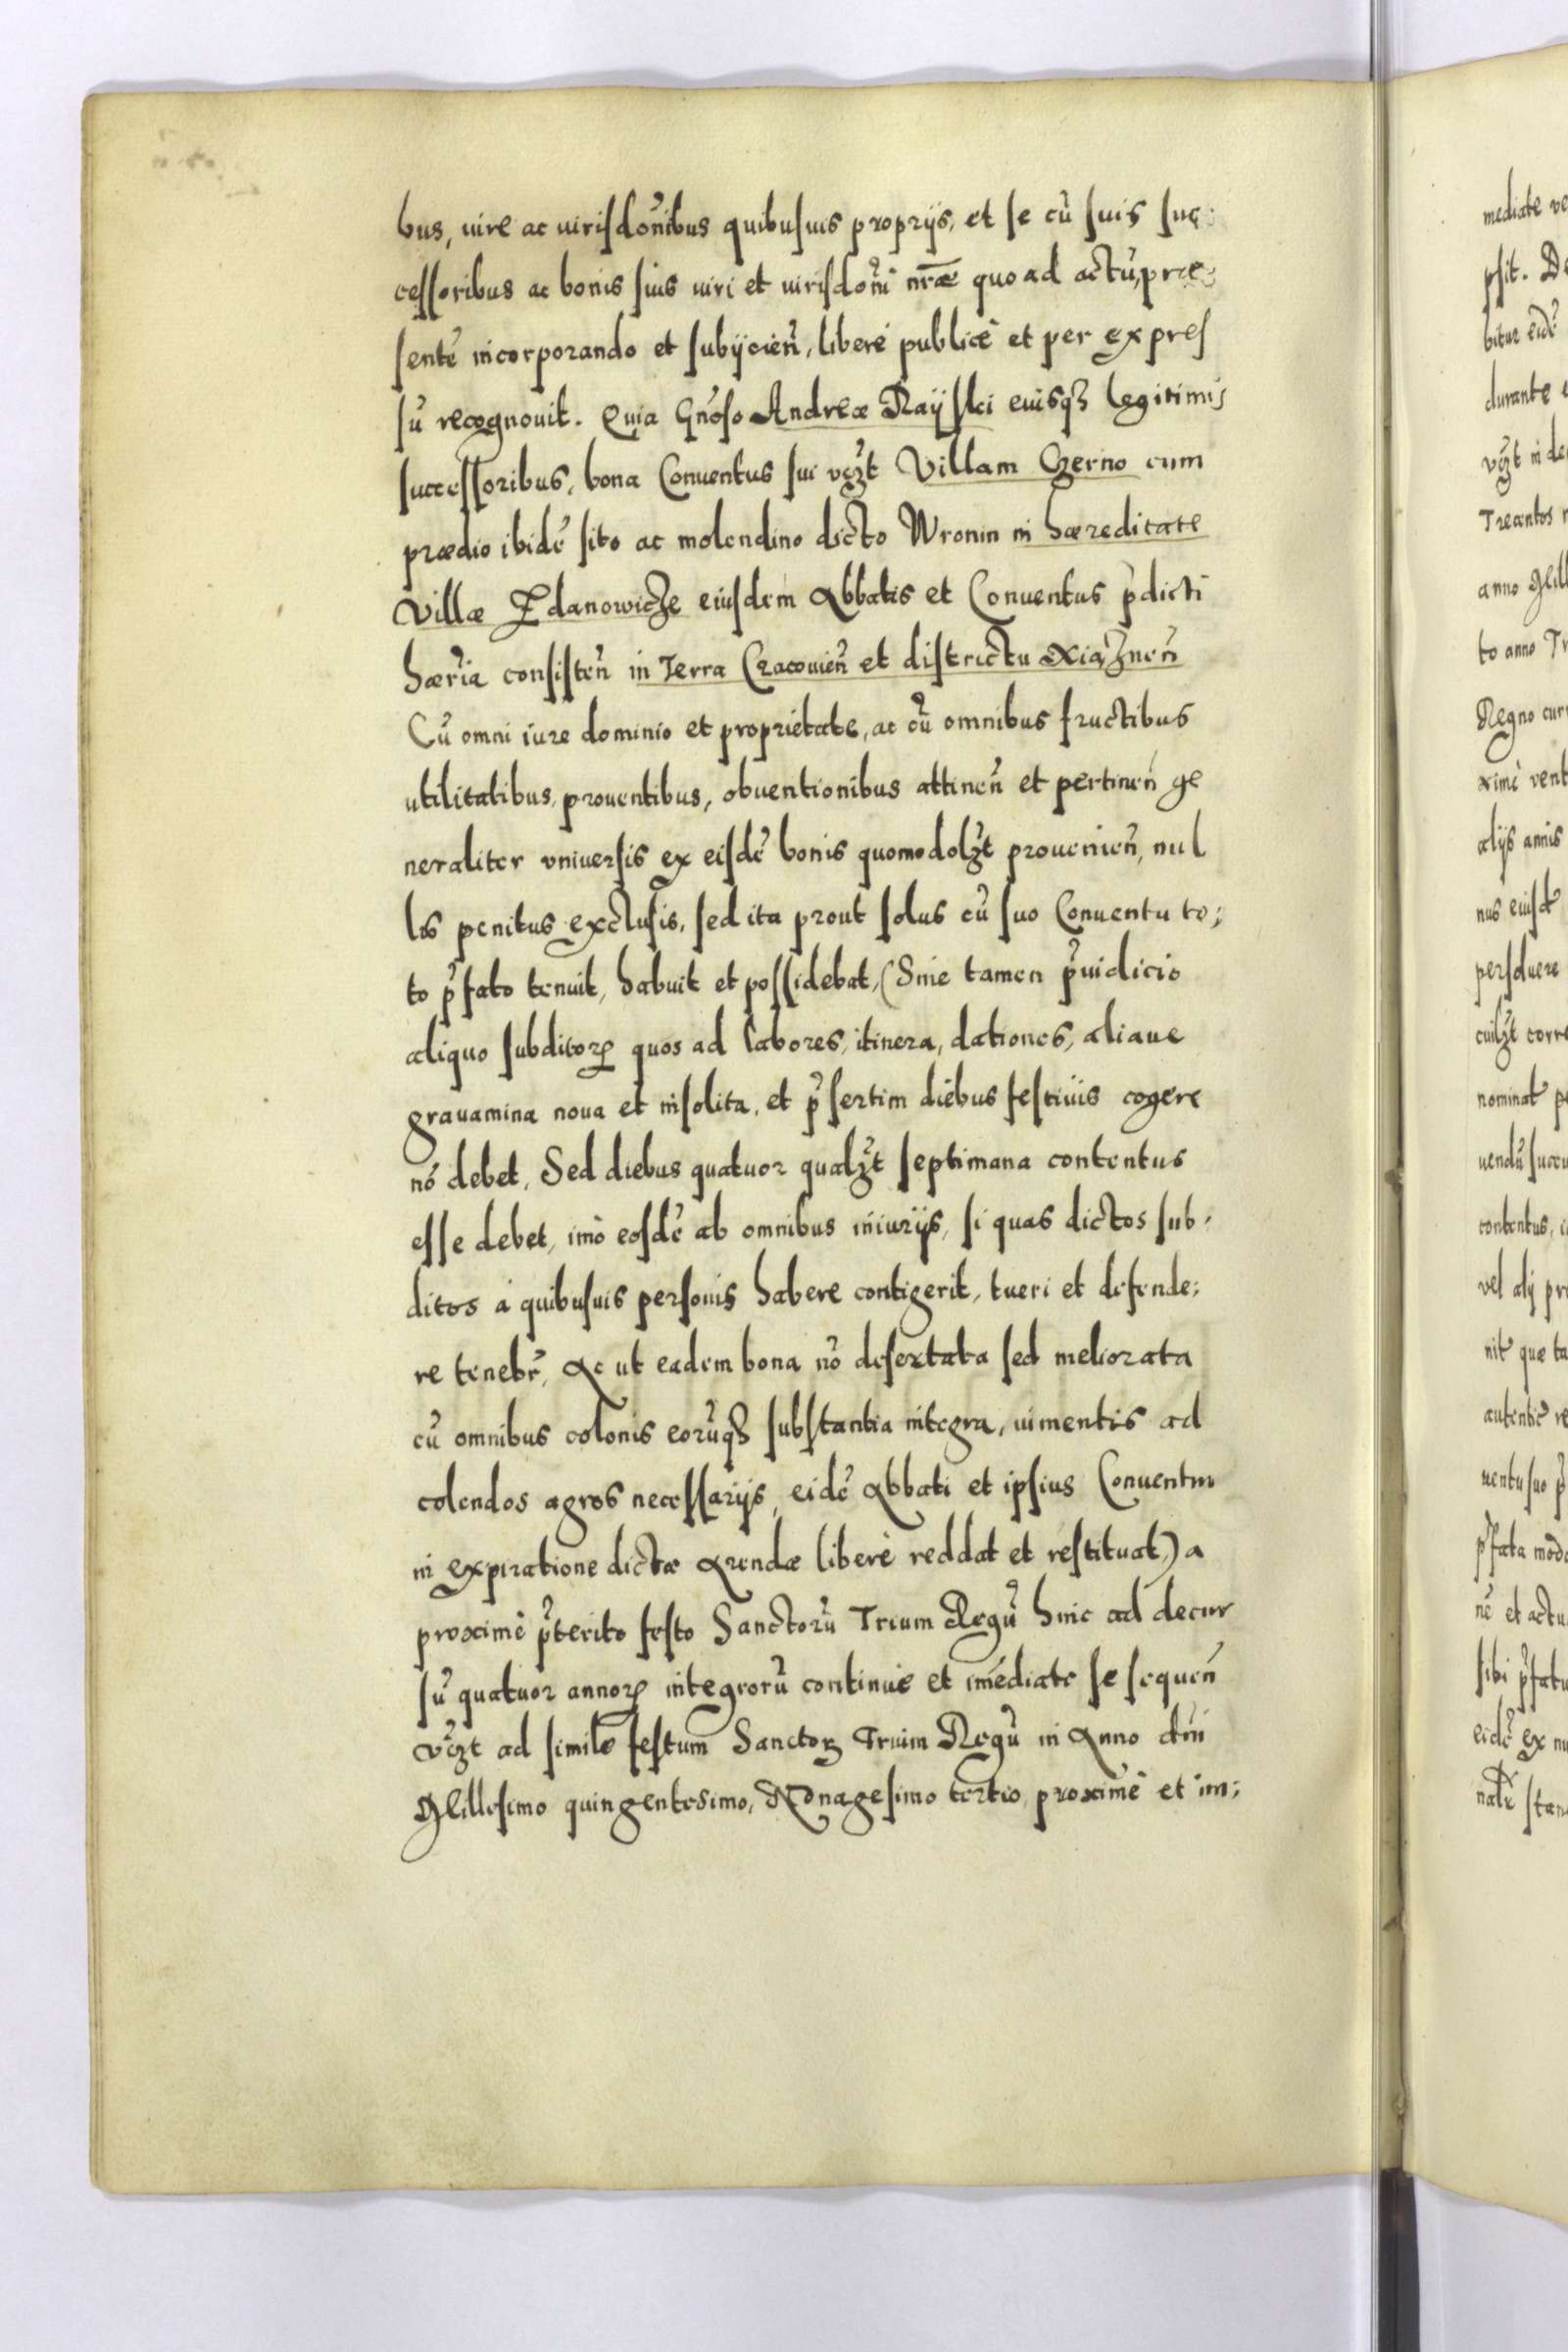 bus, iure ac iurisdōnibus quibusuis proprijs, et se cũ suis suc:
cessoribus ac bonis suis iuri et iurisdōni nr̄æ quo ad actũ præ:
sentẽ incorporando et subijcieñ, liberè publicè et per expres
sũ recognouit. Quia Gnõso Andreæ Rayski eiusq3 legitimis
successoribus, bona Conuentus sui vcz̃t Villam Czerno cum
prædio ibidẽ sito ac molendino dicto Wronin in hæreditate
Villæ Zdanowicze eiusdem Abbatis et Conuentus p̃dicti
hær̃ia consisteñ in Terra Cracouieñ et districtu Xiąznẽn
Cũ omni iure dominio et proprietate, ac cũ omnibus fructibus
utilitatibus, prouentibus, obuentionibus attineñ et pertineñ ge
neraliter vniuersis ex eisdẽ bonis quomodolz̃t prouenieñ, nul
lis penitus exclusis, sed ita prout solus cũ suo Conuentu to;
to p̃fato tenuit, habuit et possidebat, (Sine tamen p̃iudicio
aliquo subditorꝝ quos ad labores, itinera, dationes, aliaue
grauamina noua et insolita, et p̃sertim diebus festiuis cogere
nõ debet, Sed diebus quatuor qualz̃t septimana contentus
esse debet, imò eosdẽ ab omnibus iniurijs, si quas dictos sub-
ditos à quibusuis personis habere contigerit, tueri et defende:
re tenebr̃, Ac ut eadem bona nõ desertata sed meliorata
cũ omnibus colonis eorũq3 substantia integra, iumentis ad
colendos agros necessarijs, eidẽ Abbati et ipsius Conuentui
in expiratione dictæ Arendæ liberè reddat et restituat,) a
proximè p̃terito festo Sanctorũ Trium Regũ hinc ad decur
sũ quatuor annorꝝ integrorũ continuè et im̃ediatè se sequeñ
vcz̃t ad simile festum Sanctorꝝ Trium Regũ in Anno dñi
Millesimo quingentesimo, Nonagesimo tertio, proximè et im:
mediate
psit.
bitur eidẽ
durante
vcz̃t in
Trecentos
anno Mill
to anno Tr
Regno cur
ximè vent
alijs annis
nus eiusd̃
persoluere
cuilz̃t corre
nominat̃
uendũ
contentus,
vel alij pr
nit̃ quæ ta
autentic̃
uentu suo p̃
p̃fata modo
nẽ et actu
sibi p̃fatu
eidẽ ex